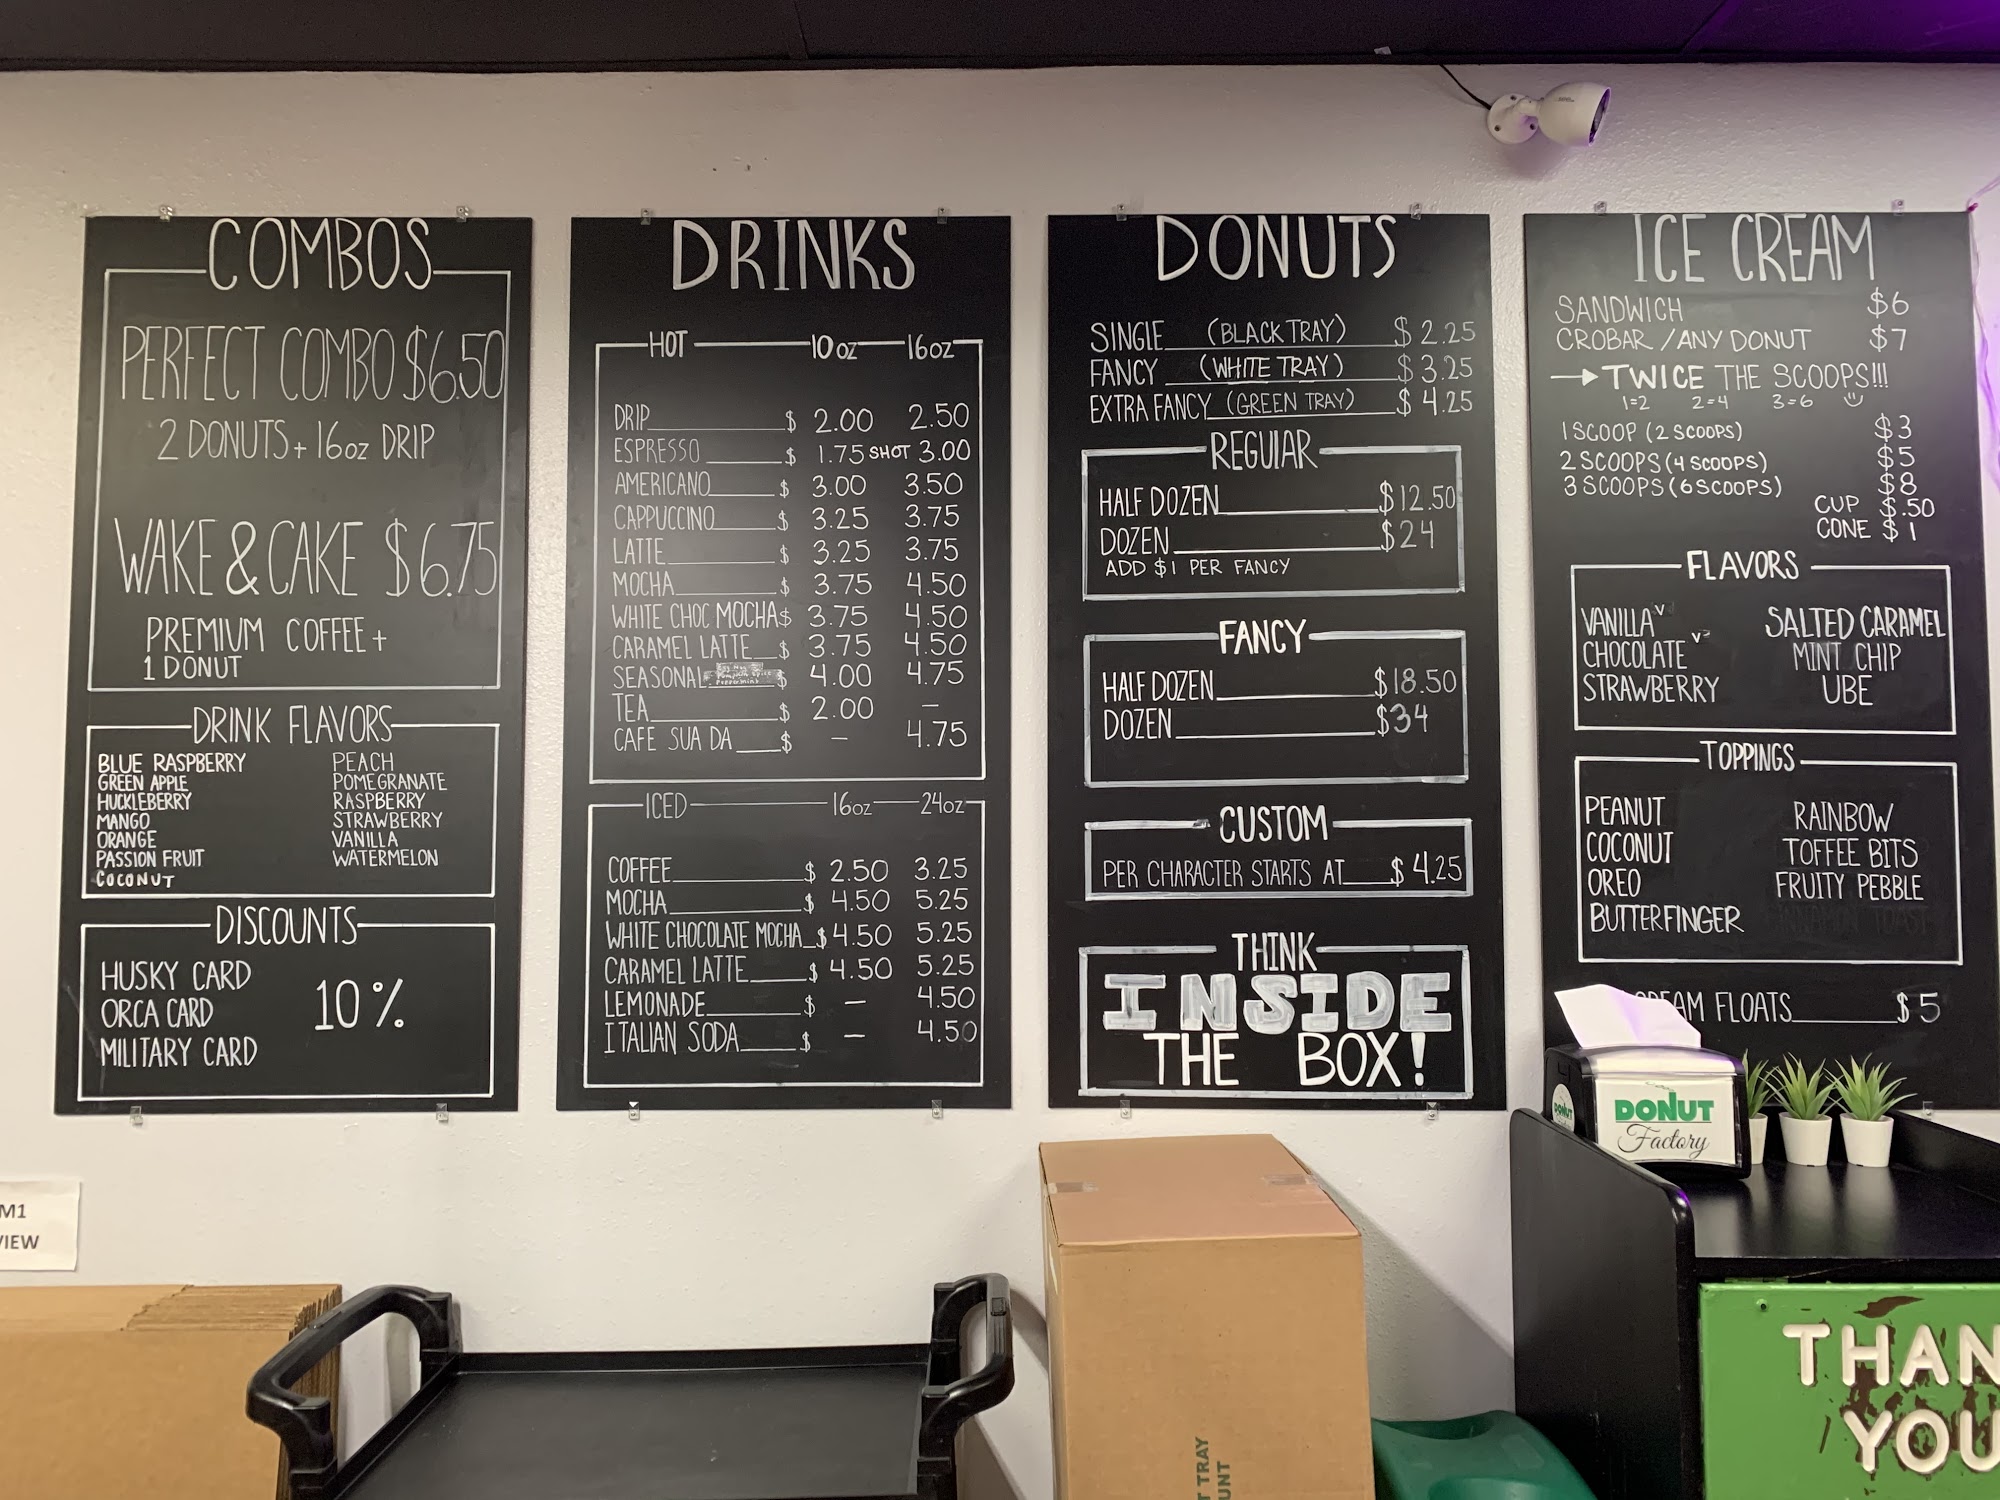 COMBOS
PERFECT COMBO $6.50
2 DONUTS + 16oz DRIP
WAKE & CAKE $6.75
PREMIUM COFFEE +
1 DONUT
DRINK FLAVORS
BLUE RASPBERRY PEACH
GREEN APPLE POMEGRANATE
HUCKLEBERRY RASPBERRY
MANGO STRAWBERRY
ORANGE VANILLA
PASSION FRUIT WATERMELON
COCONUT
DISCOUNTS
HUSKY CARD
ORCA CARD 10%
MILITARY CARD
DRINKS
HOT 10oz 16oz
DRIP $ 2.00 2.50
ESPRESSO $ 1.75 SHOT 3.00
AMERICANO $ 3.00 3.50
CAPPUCCINO $ 3.25 3.75
LATTE $ 3.25 3.75
MOCHA $ 3.75 4.50
WHITE CHOC MOCHA $ 3.75 4.50
CARAMEL LATTE $ 3.75 4.50
SEASONAL $ 4.00 4.75
TEA $ 2.00 –
CAFE SUA DA $ – 4.75
ICED 16oz 24oz
COFFEE $ 2.50 3.25
MOCHA $ 4.50 5.25
WHITE CHOCOLATE MOCHA $ 4.50 5.25
CARAMEL LATTE $ 4.50 5.25
LEMONADE $ – 4.50
ITALIAN SODA $ – 4.50
DONUTS
SINGLE (BLACK TRAY) $ 2.25
FANCY (WHITE TRAY) $ 3.25
EXTRA FANCY (GREEN TRAY) $ 4.25
REGULAR
HALF DOZEN $12.50
DOZEN $24
ADD $1 PER FANCY
FANCY
HALF DOZEN $18.50
DOZEN $34
CUSTOM
PER CHARACTER STARTS AT $ 4.25
THINK
INSIDE
THE BOX!
ICE CREAM
SANDWICH $6
CROBAR / ANY DONUT $7
→ TWICE THE SCOOPS!!!
1=2 2=4 3=6
1 SCOOP (2 SCOOPS) $3
2 SCOOPS (4 SCOOPS) $5
3 SCOOPS (6 SCOOPS) $8
CUP $.50
CONE $1
FLAVORS
VANILLA v SALTED CARAMEL
CHOCOLATE v MINT CHIP
STRAWBERRY UBE
TOPPINGS
PEANUT RAINBOW
COCONUT TOFFEE BITS
OREO FRUITY PEBBLE
BUTTERFINGER
FLOATS $5
DONUT
Factory
M1
VIEW
T TRAY
UNT
THAN
YOU